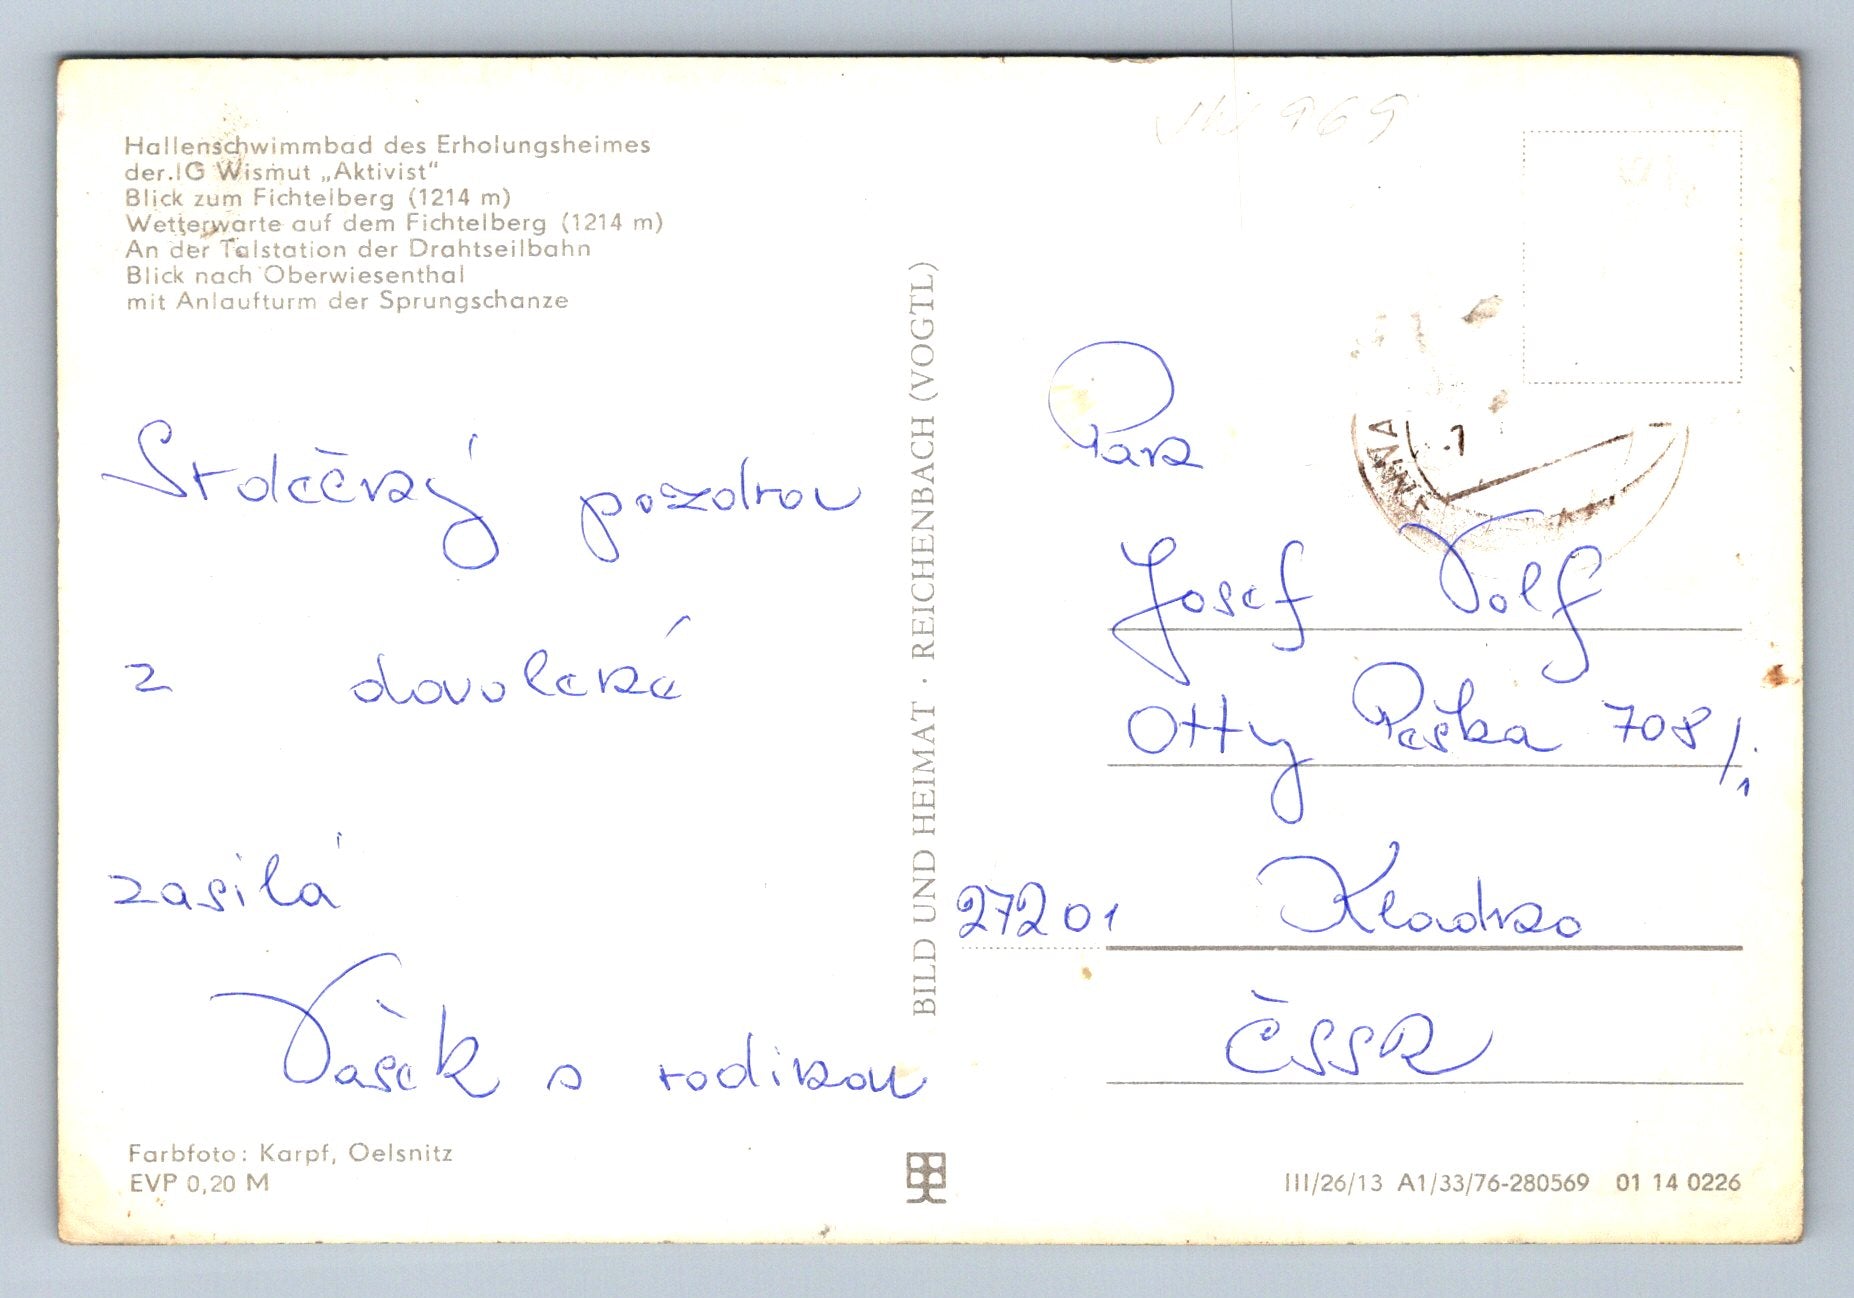 Hallenschwimmbad des Erholungsheimes
der IG Wismut „Aktivist“
Blick zum Fichtelberg (1214 m)
Wetterwarte auf dem Fichtelberg (1214 m)
An der Talstation der Drahtseilbahn
Blick nach Oberwiesenthal
mit Anlaufturm der Sprungschanze
Srdečný pozdrav
z dovolené
zasílá
Vašek s rodinou
Farbfoto: Karpf, Oelsnitz
EVP 0,20 M
BILD UND HEIMAT · REICHENBACH (VOGTL)
969
Pan
Josef Volf
Otty Peška 708/1
27201 Kladno
ČSSR
III/26/13 A1/33/76-280569 01 14 0226